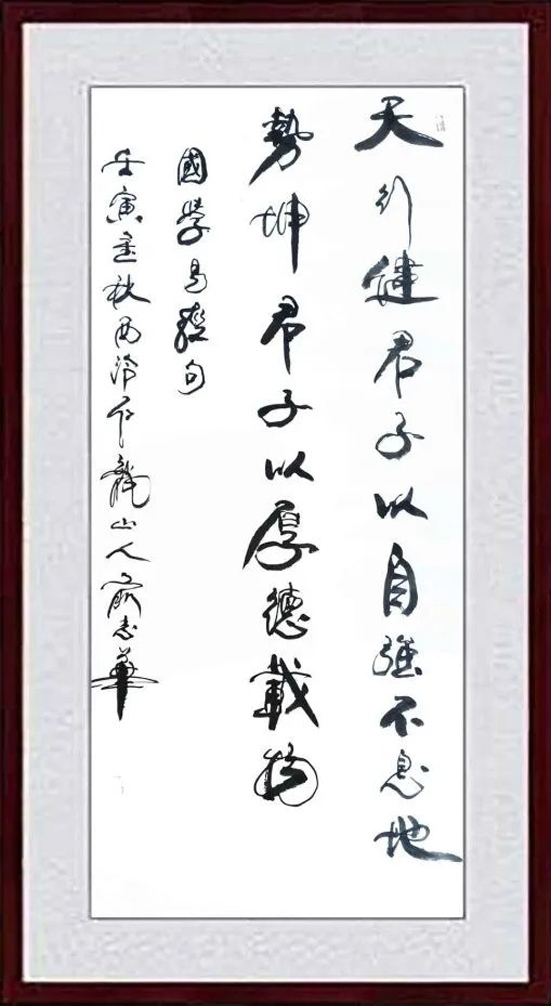 天行健君子以自強不息地
勢坤君子以厚德載物
國學易經句
壬寅秋西泠龍山人志華